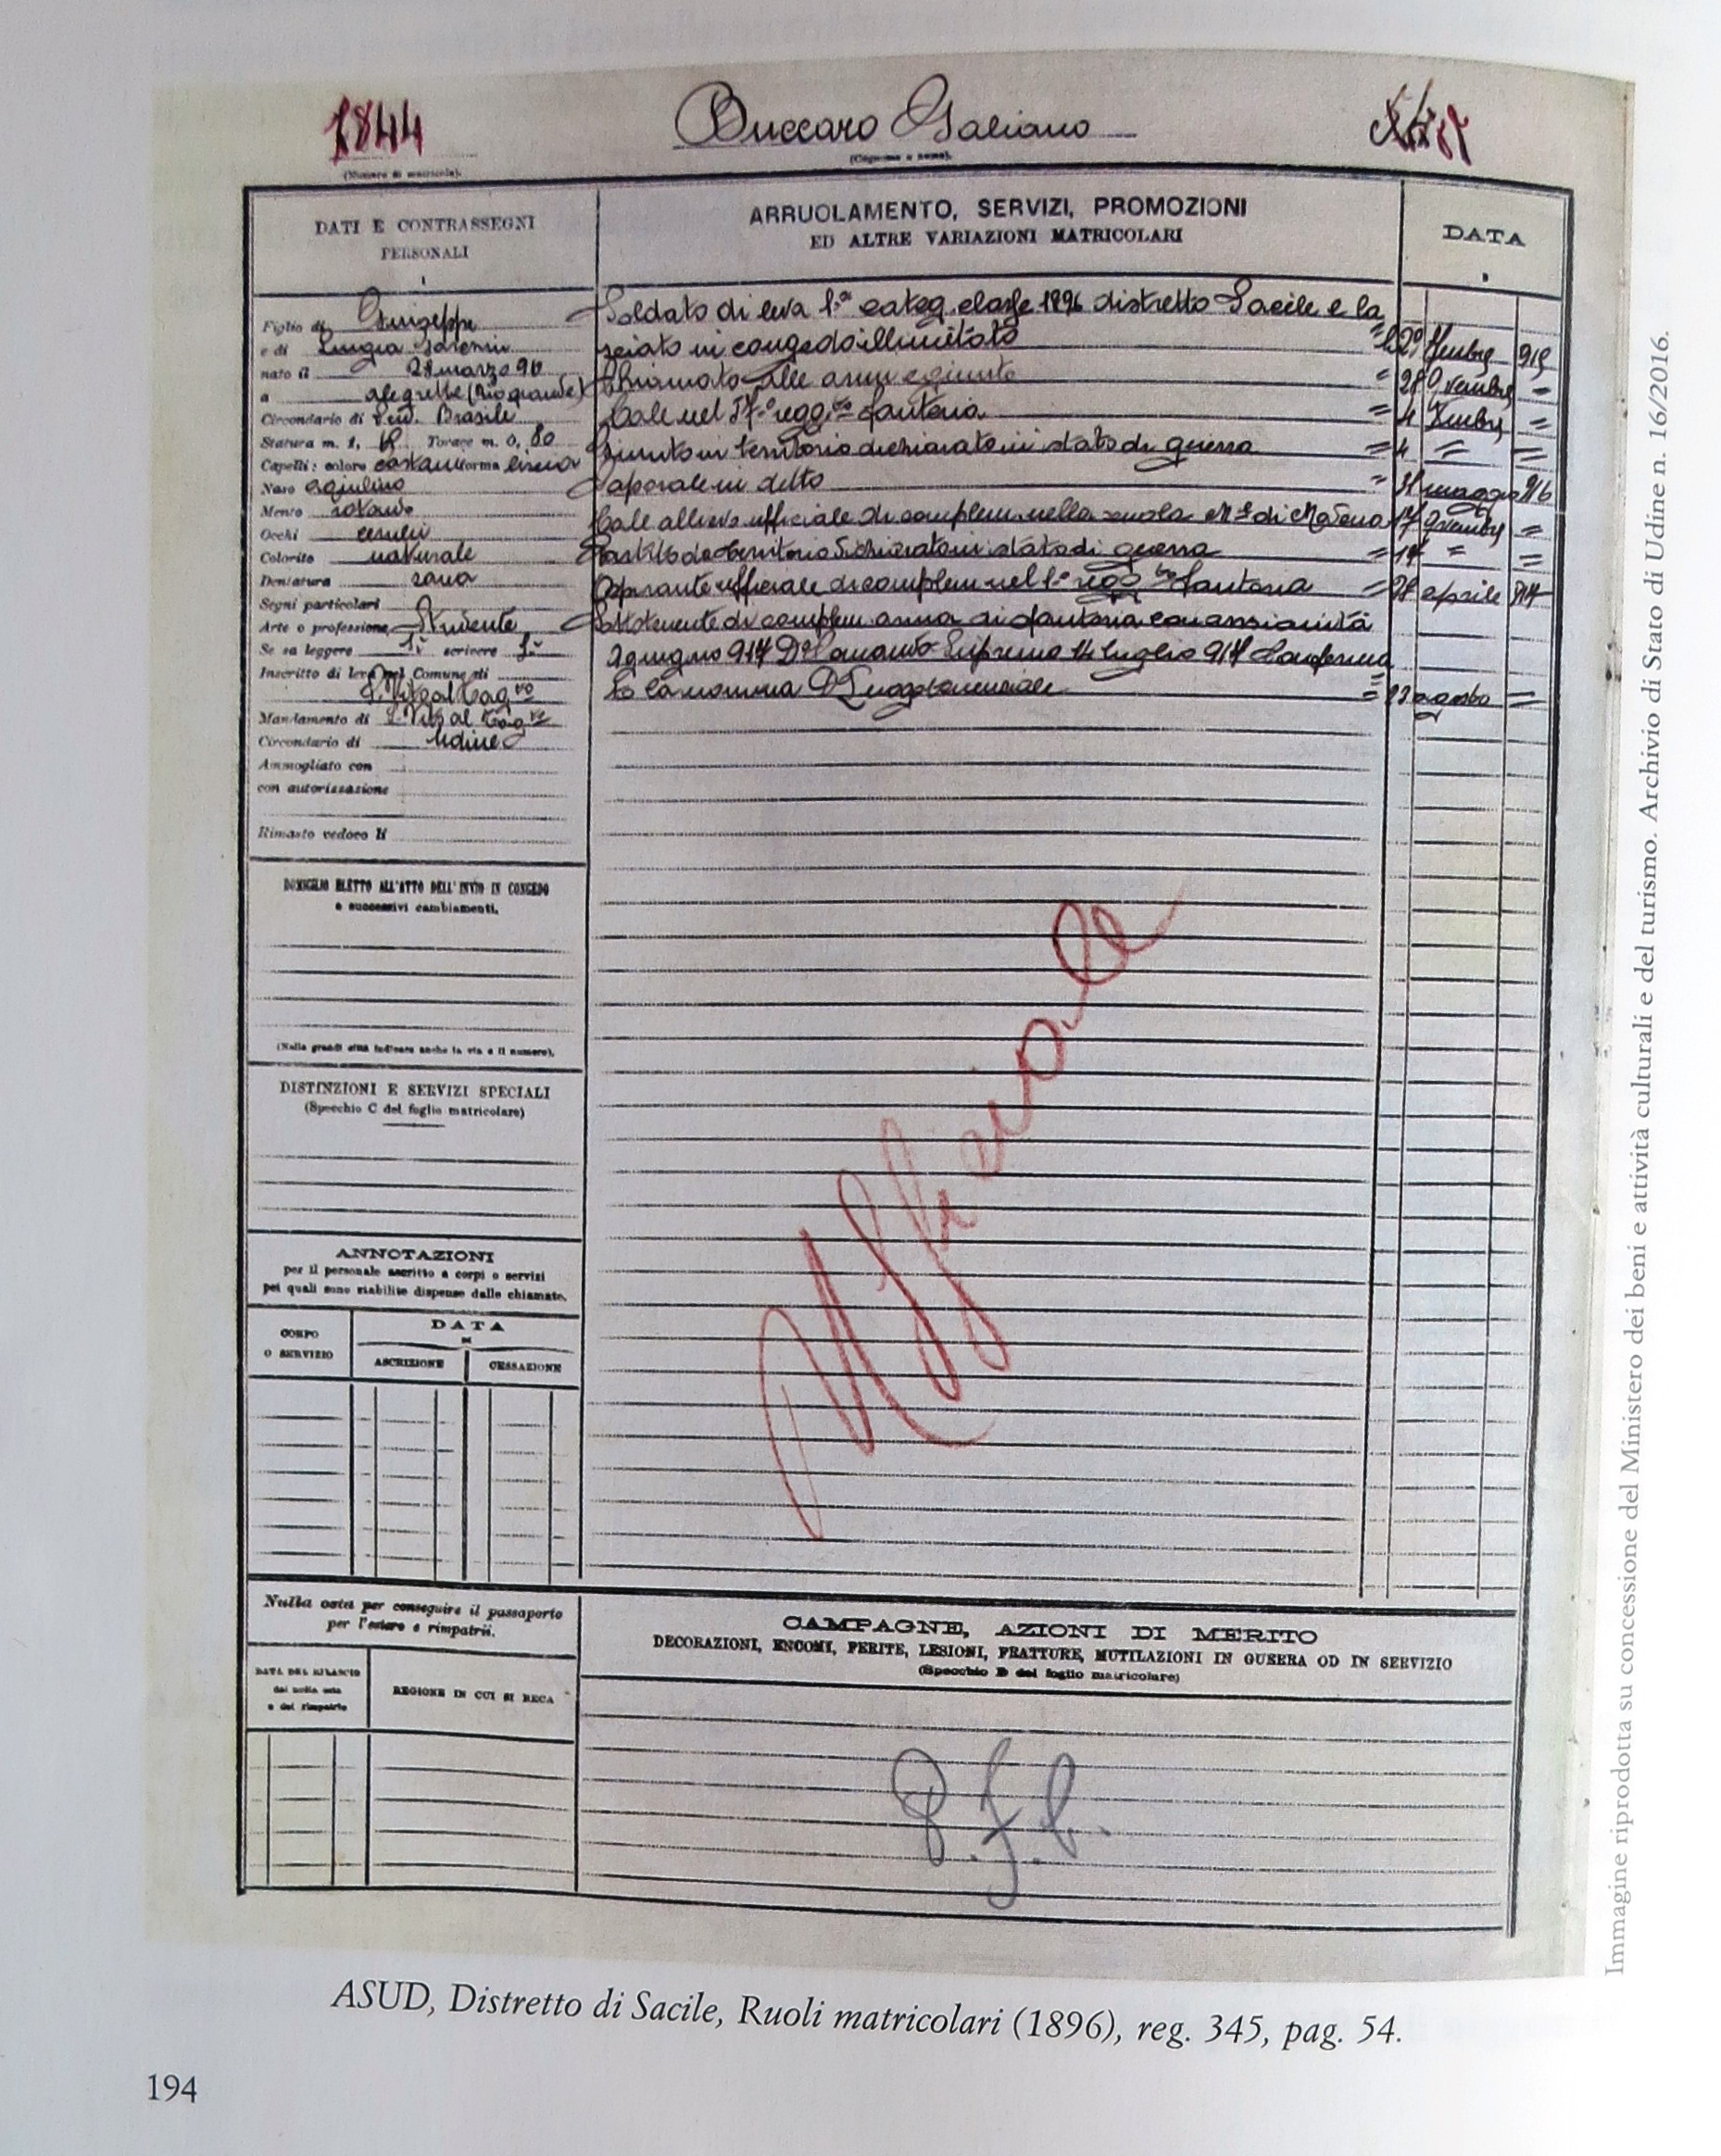 1844
Buccaro Galiano
(Numero di matricola).
(Cognome e nome).
DATI E CONTRASSEGNI
PERSONALI
ARRUOLAMENTO, SERVIZI, PROMOZIONI
ED ALTRE VARIAZIONI MATRICOLARI
DATA
Figlio di Giuseppe
e di Luigia
nato il 28 marzo 96
a Alegrette (Rio grande)
Circondario di Brasile
Statura m. 1, Torace m. 0, 80
Capelli: colore castani forma lisci
Naso aquilino
Mento rotondo
Occhi cerulei
Colorito naturale
Dentatura sana
Segni particolari
Arte o professione Studente
Se sa leggere Si scrivere Si
Inscritto di leva nel Comune di
S. Vito al Tag.to
Mandamento di S. Vito al Tag.to
Circondario di Udine
Ammogliato con
con autorizzazione
Rimasto vedovo li
Soldato di leva 1.a categ. classe 1896 distretto Sacile e la
sciato in congedo illimitato 915
Chiamato alle armi e giunto = 28 9vembre =
Tale nel regg.to fanteria = 4 Xembre =
Giunto in territorio dichiarato in stato di guerra = 4 = =
Caporale in detto = 31 maggio 916
Tale allievo ufficiale di complem. nella scuola di Modena 17 9vembre =
Partito da territorio dichiarato in stato di guerra = 17 = =
Aspirante ufficiale di complem. nel 1.o regg.to fanteria = 28 aprile 917
Sottotenente di complem. arma di fanteria con anzianità
2 giugno 917 D. Comando Supremo 14 luglio 917 Conferma
ta la nomina D. Luogotenenziale = 23 agosto =
DOMICILIO ELETTO ALL'ATTO DELL'INVIO IN CONGEDO
e successivi cambiamenti.
(Nelle grandi città indicare anche la via e il numero).
DISTINZIONI E SERVIZI SPECIALI
(Specchio C del foglio matricolare)
Ufficiale
ANNOTAZIONI
per il personale ascritto a corpi o servizi
pei quali sono stabilite dispense dalle chiamate.
CORPO
O SERVIZIO
DATA
DI
ASCRIZIONE
CESSAZIONE
Nulla osta per conseguire il passaporto
per l'estero e rimpatrii.
DATA DEL RILASCIO
del nulla osta
e del rimpatrio
REGIONE IN CUI SI RECA
CAMPAGNE, AZIONI DI MERITO
DECORAZIONI, ENCOMI, FERITE, LESIONI, FRATTURE, MUTILAZIONI IN GUERRA OD IN SERVIZIO
(Specchio D del foglio matricolare)
Immagine riprodotta su concessione del Ministero dei beni e attività culturali e del turismo. Archivio di Stato di Udine n. 16/2016.
ASUD, Distretto di Sacile, Ruoli matricolari (1896), reg. 345, pag. 54.
194